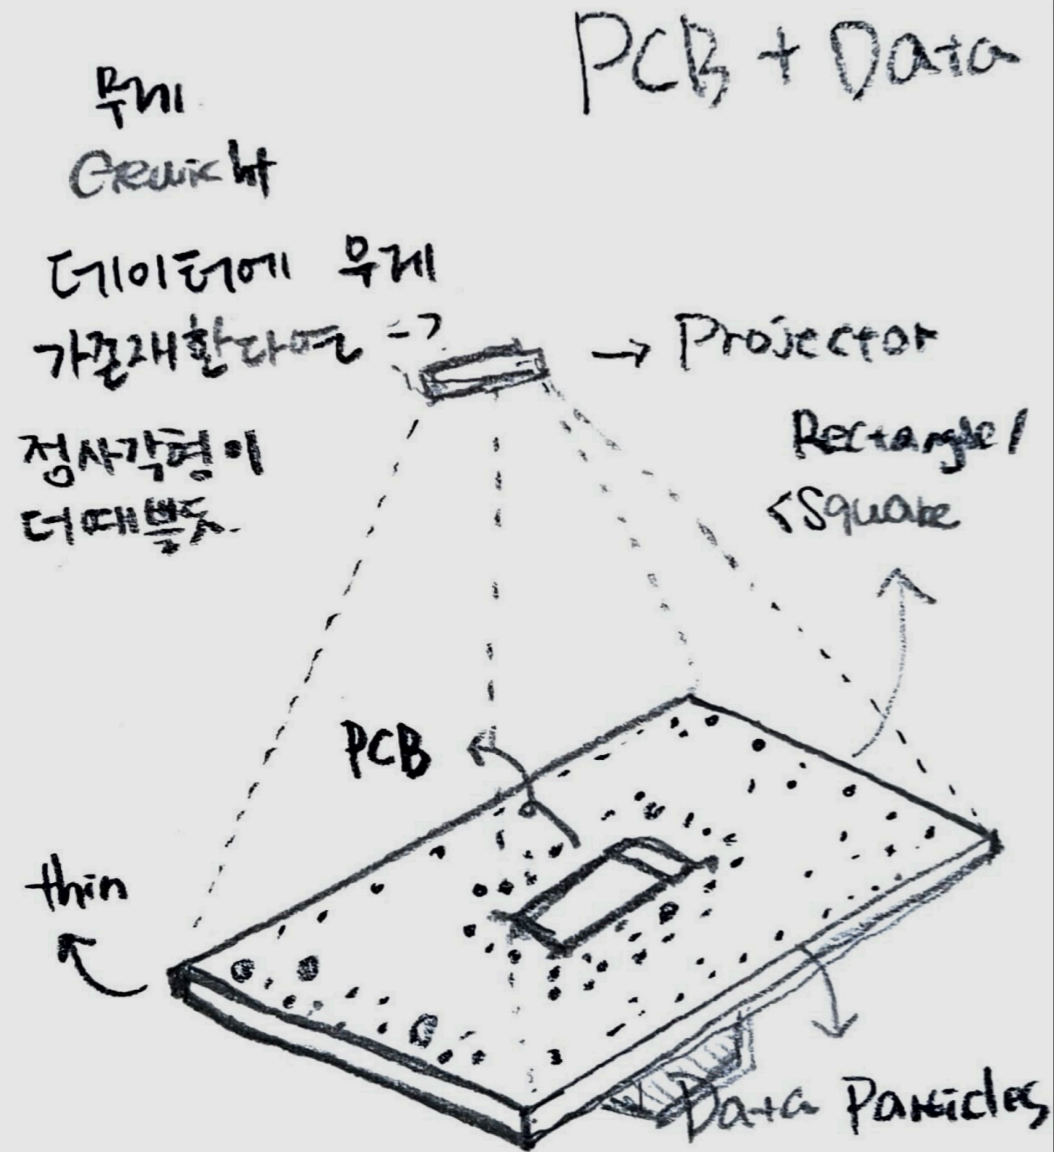 PCB + Data
무게
Gewicht
데이터에 무게
가존재한다면 →
→ Projector
정사각형이
더예쁠듯.
Rectangle/
Square
PCB
thin
Data Particles